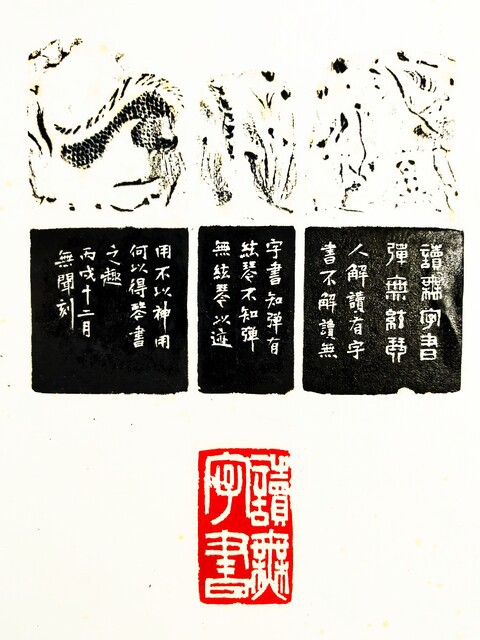 讀無字書
彈無絃琴
人解讀有字
書不解讀無
字書知彈有
絃琴不知彈
無絃琴以迹
用不以神用
何以得琴書
之趣
丙戌十二月
無聞刻
讀無
字書